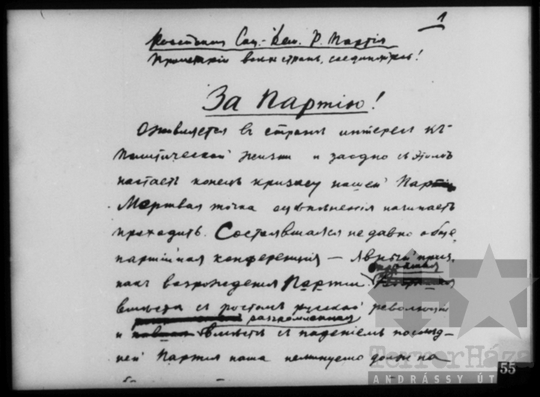 1
Россійская Соц.-Дем. Р. Партія
Пролетаріи всѣхъ странъ, соединяйтесь!
За Партію!
Оживляется въ странѣ интересъ къ
политической жизни и заодно съ этимъ
настаетъ конецъ кризису нашей Партіи
Мертвая точка оцѣпенѣнія начинаетъ
проходить. Состоявшаяся недавно обще-
партійная конференція — явный приз-
накъ возрожденія Партіи.
вмѣстѣ съ ростомъ русской революціи
и разгромленная
вмѣстѣ съ паденіемъ послѣд-
ней Партія наша неминуемо должна
TerrorHáza
ANDRÁSSY ÚT
55